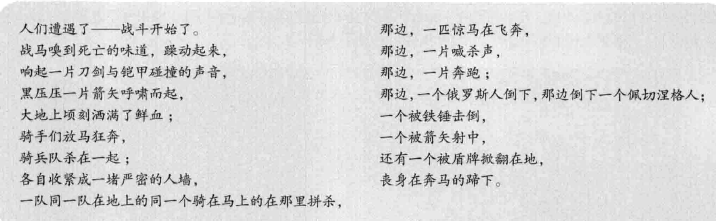 人们遭遇了——战斗开始了。
战马嗅到死亡的味道，躁动起来，
响起一片刀剑与铠甲碰撞的声音，
黑压压一片箭矢呼啸而起，
大地上顷刻洒满了鲜血；
骑手们放马狂奔，
骑兵队杀在一起；
各自收紧成一堵严密的人墙，
一队同一队在地上的同一个骑在马上的在那里拼杀，
那边，一匹惊马在飞奔，
那边，一片喊杀声，
那边，一片奔跑；
那边，一个俄罗斯人倒下，那边倒下一个佩切涅格人；
一个被铁锤击倒，
一个被箭矢射中，
还有一个被盾牌掀翻在地，
丧身在奔马的蹄下。